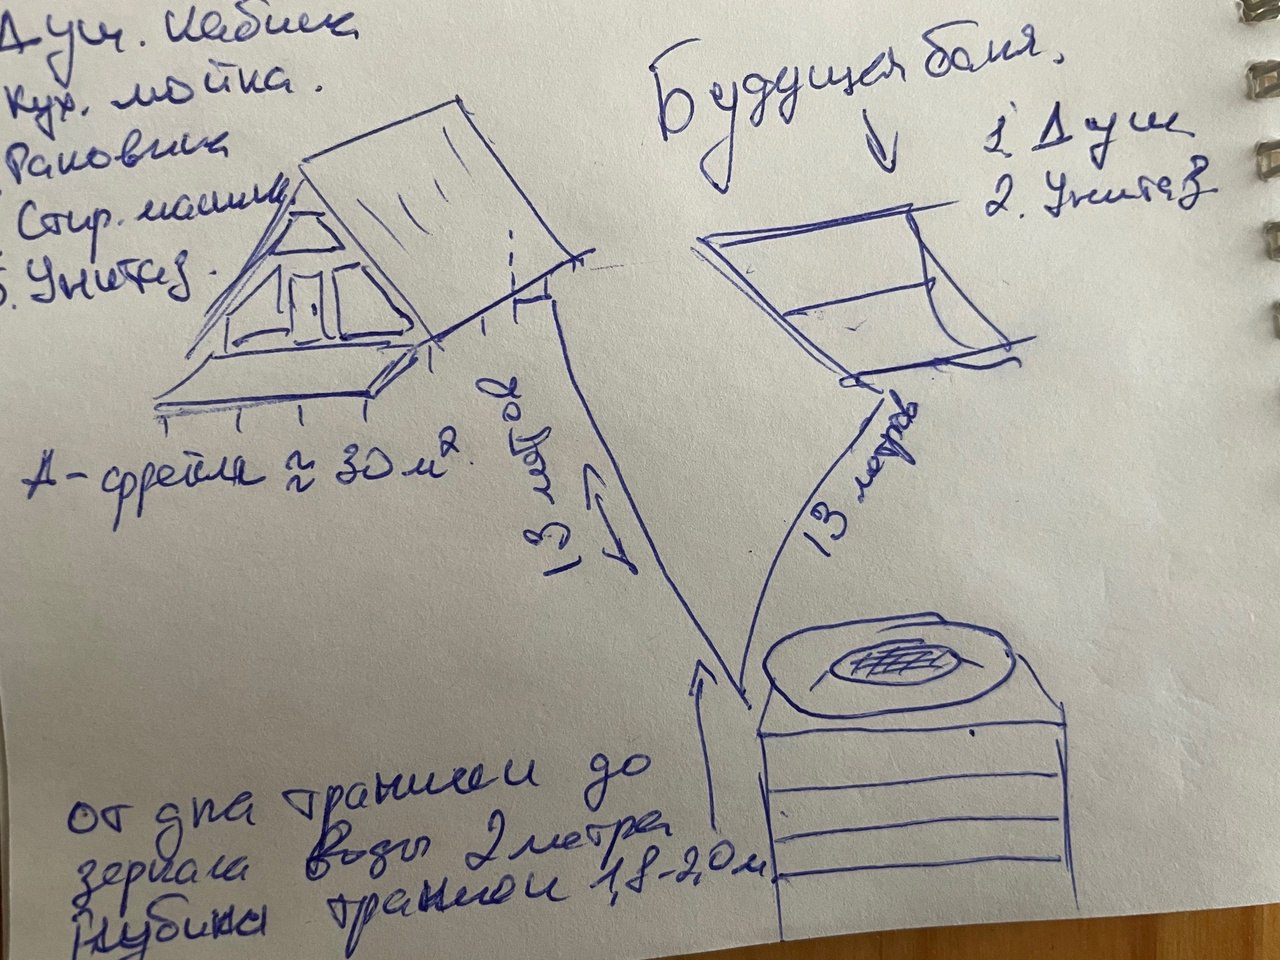 Душ. кабина
Кух. мойка.
Раковина
Стир. машина
5. Унитаз.
Будущая баня.
1. Душ
2. Унитаз
А-фрейм ≈ 30 м².
13 метров
13 метров
от дна траншеи до
зеркала воды 2 метра
глубина траншеи 1,8-2,0м